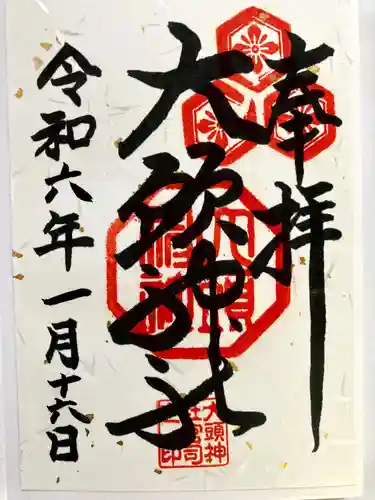 奉拝
大頭神社
令和六年一月十六日
大頭神社
大頭神
社宮司
之印